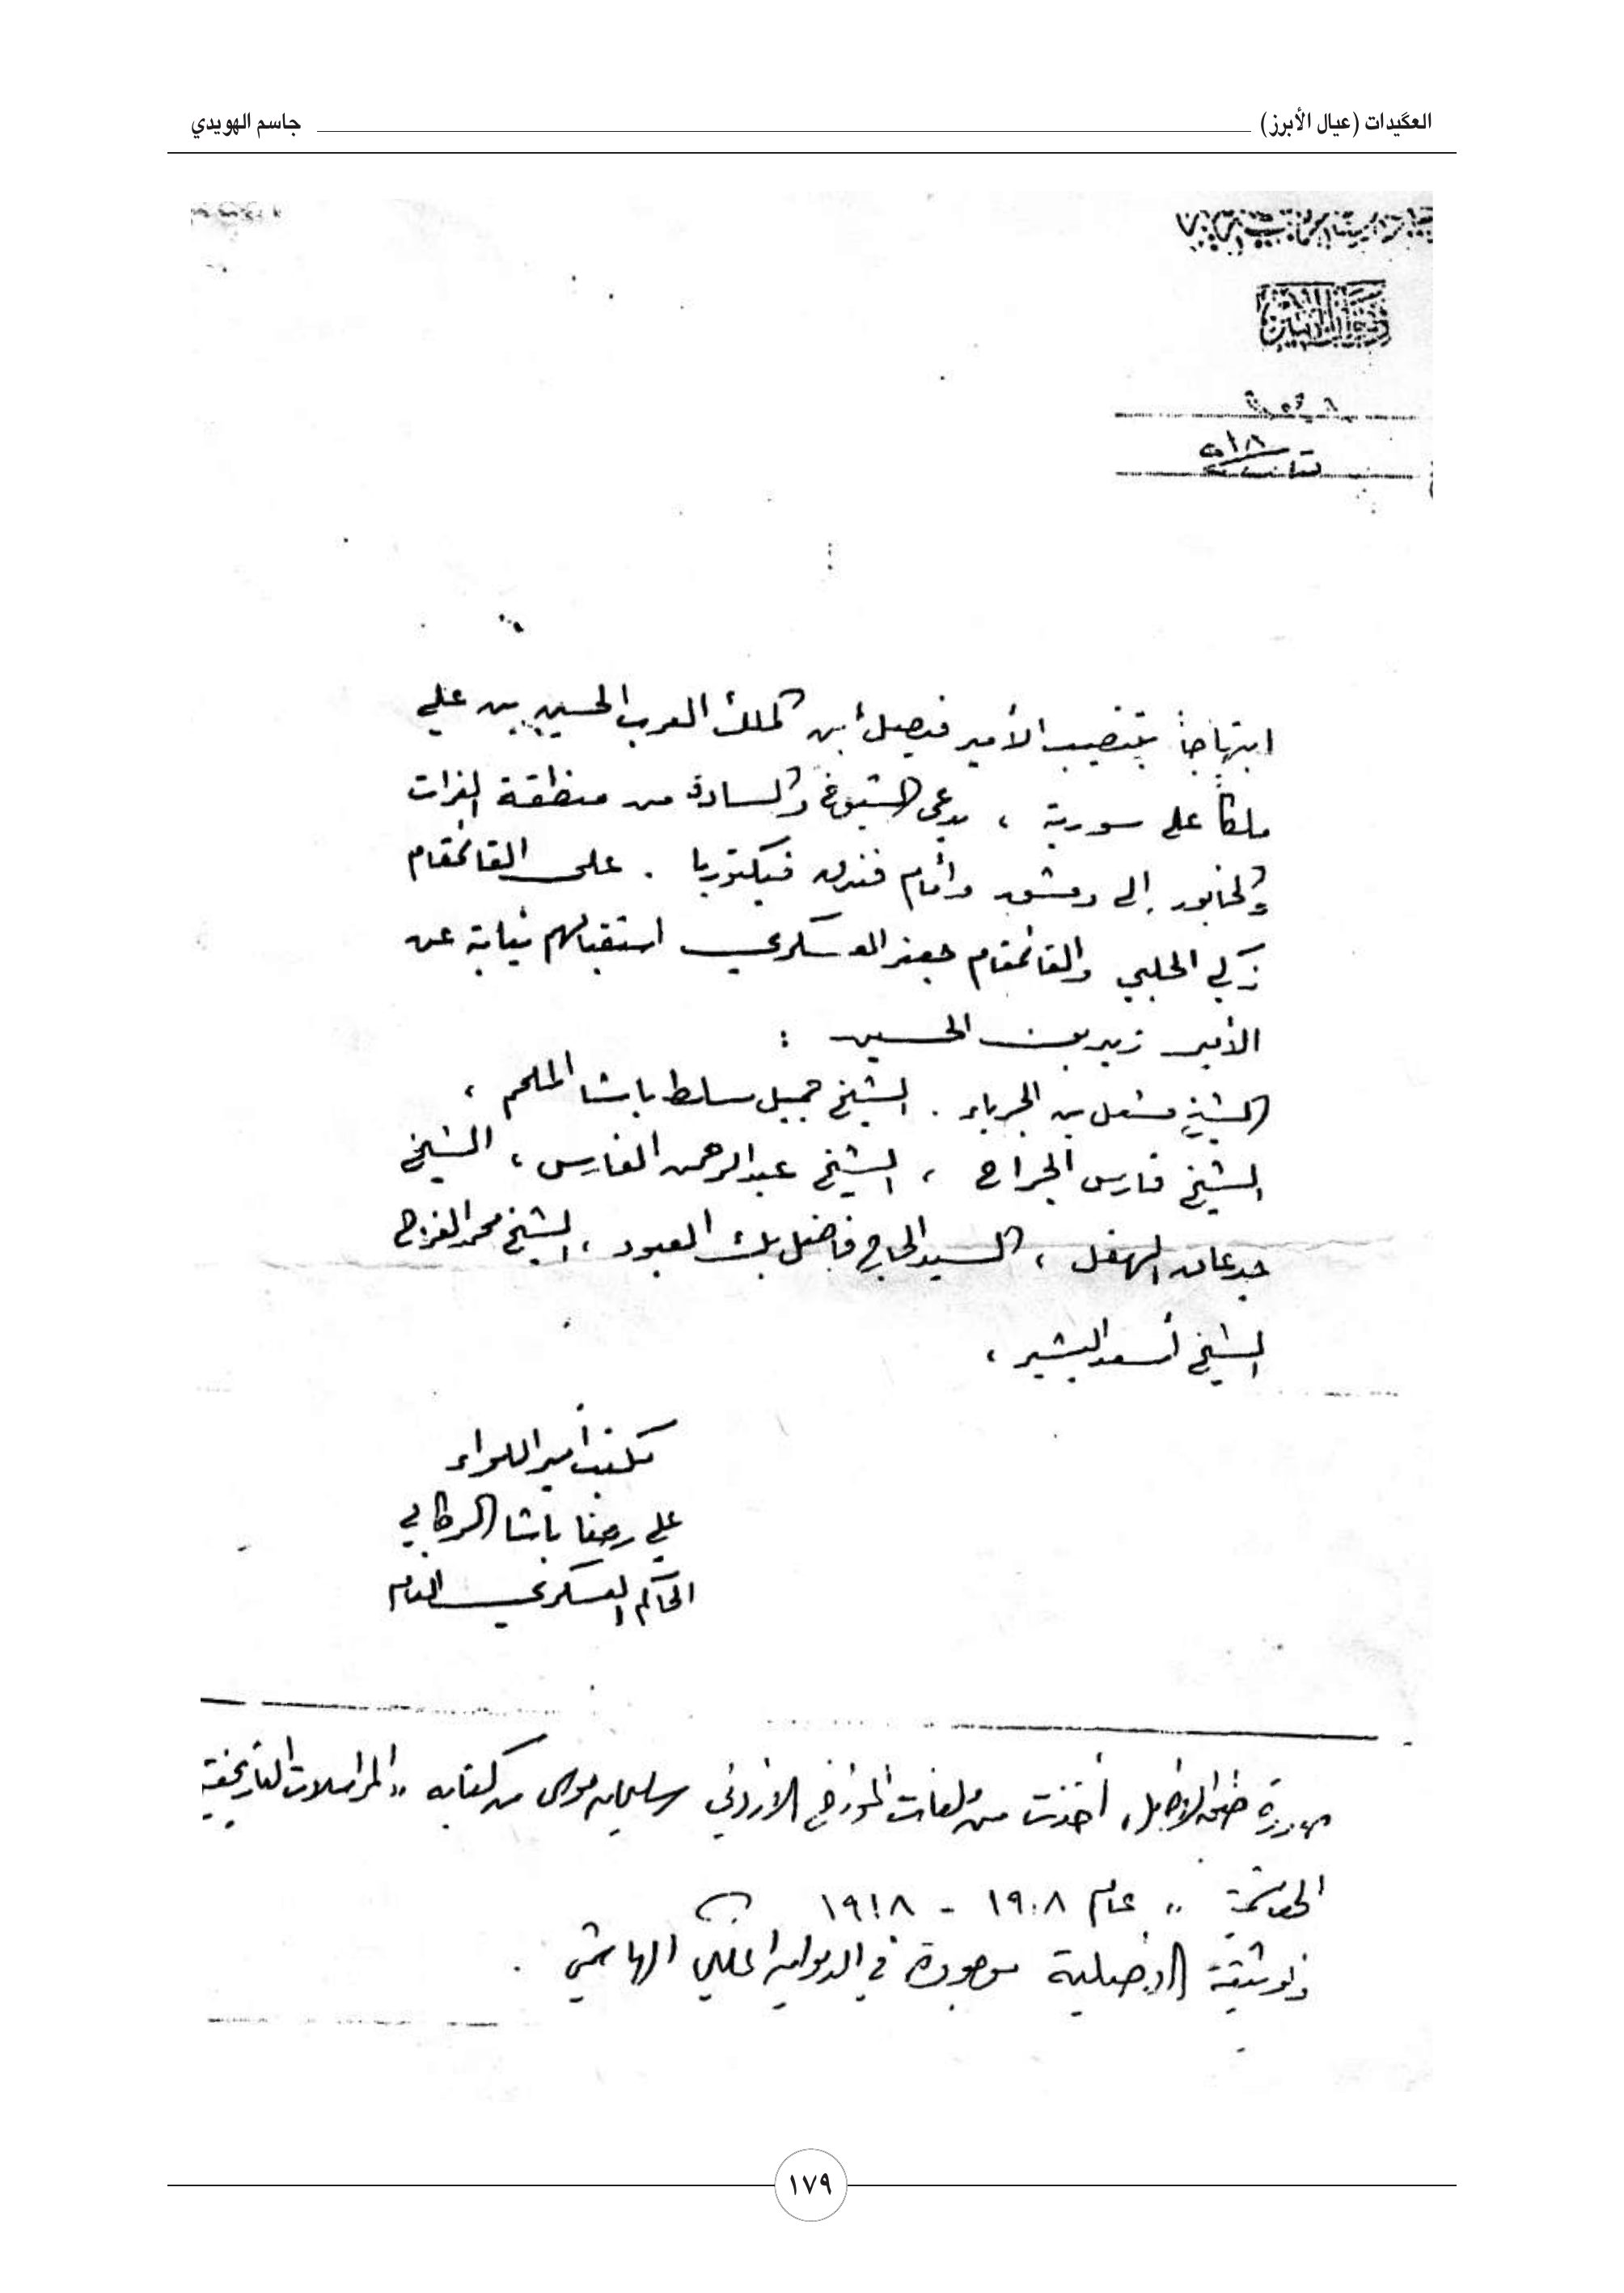 العگيدات (عيال الأبرز) جاسم الهويدي
ابتهاجاً بتنصيب الأمير فيصل ابن الملك العرب الحسين بن علي
ملكاً على سورية ، يدعى الشيوخ والسادة من منطقة الفرات
والخابور إلى دمشق وأمام فندق فيكتوريا . على القائمقام
زكي الحلبي والقائمقام جعفر العسكري استقبالهم نيابة عن
الأمير زيد بن الحسين :
الشيخ مشعل بن الجرباء . الشيخ جميل مسلط باشا الملحم ،
الشيخ فارس الجراح ، الشيخ عبدالرحمن الفارس ، الشيخ
جدعان الهفل ، السيد الحاج فاضل بك العبود ، الشيخ محمد الفرج
الشيخ أسعد البشير ،
مكتب أمير اللواء
علي رضا باشا الركابي
الحاكم العسكري العام
صورة طبق الأصل ، أخذت من مؤلفات المؤرخ الأردني سليمان موسى من كتابه " المراسلات التاريخية
الهاشمية " عام ١٩٠٨ - ١٩١٨
والوثيقة الأصلية موجودة في الديوان الملكي الهاشمي .
١٧٩